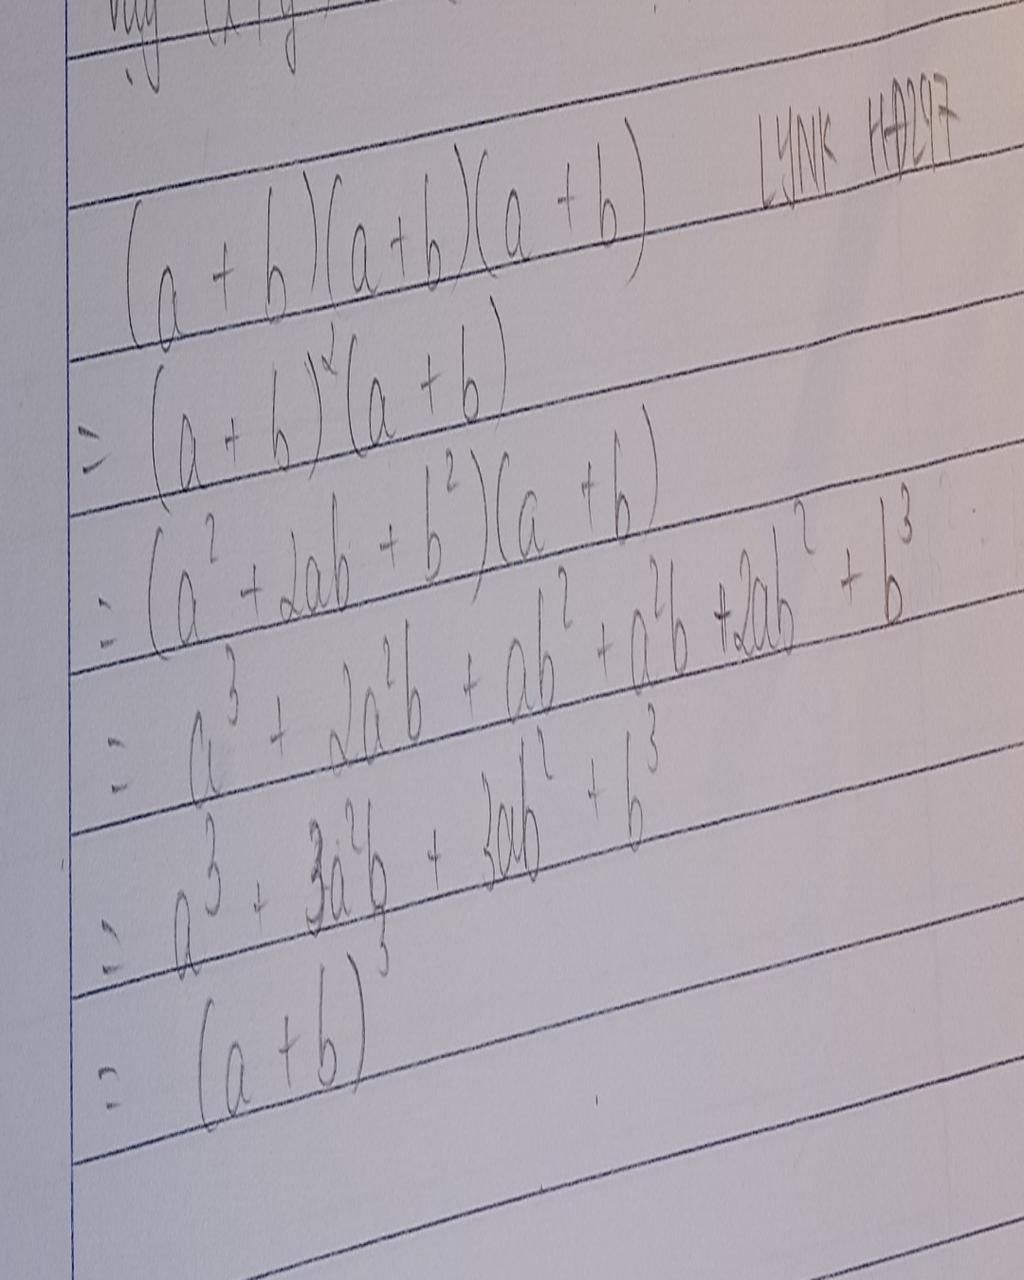 (a + b)(a + b)(a + b) LYNK HD297
= (a + b)²(a + b)
= (a² + 2ab + b²)(a + b)
= a³ + 2a²b + ab² + a²b + 2ab² + b³
= a³ + 3a²b + 3ab² + b³
= (a + b)³